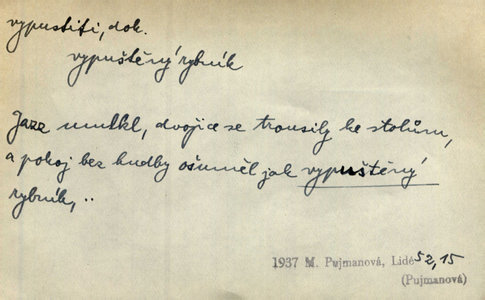 vypustiti, dok.
vypuštěný rybník
Jazz umlkl, dvojice se trousily ke stolům,
a pokoj bez hudby ošuměl jak vypuštěný
rybník, ..
1937 M. Pujmanová, Lidé 52, 15
(Pujmanová)